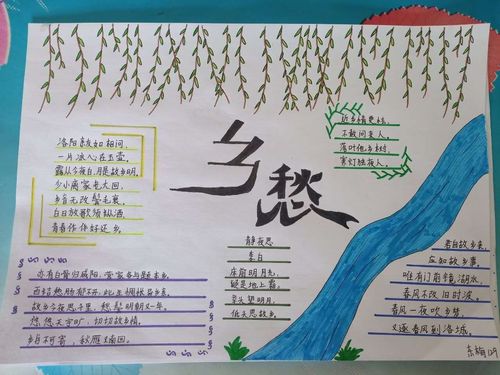 乡愁
洛阳亲友如相问,
一片冰心在玉壶。
露从今夜白,月是故乡明。
少小离家老大回,
乡音无改鬓毛衰。
白日放歌须纵酒,
青春作伴好还乡。
近乡情更怯,
不敢问来人。
落叶他乡树,
寒灯独夜人。
静夜思
李白
床前明月光,
疑是地上霜。
举头望明月,
低头思故乡。
亦有白骨归咸阳,营家各与题本乡。
百结愁肠郁不开,此生惆怅异乡
故乡今夜思千里,愁鬓明朝又一年。
悠悠天宇旷,切切故乡情。
乡自不害,秋雁南回。
君自故乡来,
应知故乡事。
唯有门前镜湖水,
春风不改旧时波。
春风一夜吹乡梦,
又逐春风到洛城。